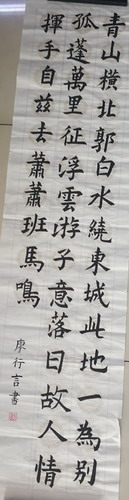 青山橫北郭白水繞東城此地一為別
孤蓬萬里征浮雲游子意落日故人情
揮手自茲去蕭蕭班馬鳴
康行言書